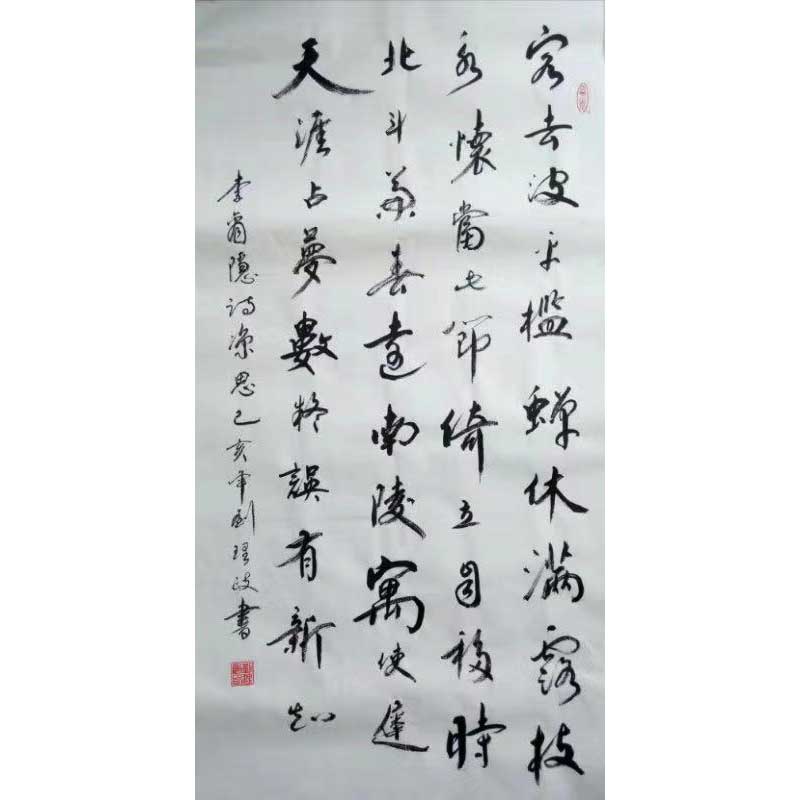 客去波平檻蟬休滿露枝
永懷當此節倚立自移時
北斗兼春遠南陵寓使遲
天涯占夢數疑誤有新知
李商隱诗凉思己亥年劉理政書